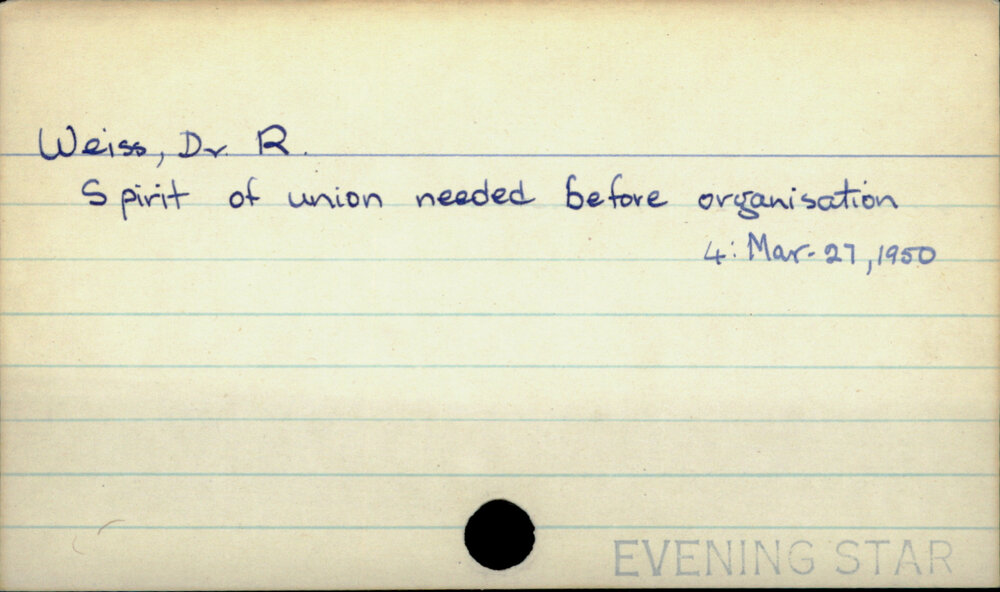 Weiss, Dr. R.
Spirit of union needed before organisation
4: Mar. 27, 1950
EVENING STAR